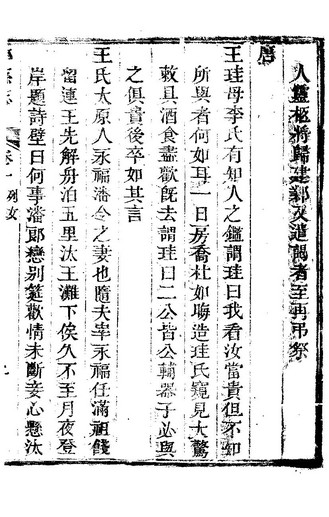 人靈柩將歸建鄴又遣謁者至再弔祭
唐
王珪母李氏有知人之鑑謂珪曰我看汝當貴但不知
所與者何如耳一日房喬杜如晦造珪氏窺見大驚
敕具酒食盡歡既去謂珪曰二公皆公輔器子必與
之俱貴後卒如其言
王氏太原人永福潘令之妻也隨夫宰永福任滿祖餞
留連王先解舟泊五里汰王灘下俟久不至月夜登
岸題詩壁曰何事潘郎戀別筵歡情未斷妾心懸汰
卷十 列女